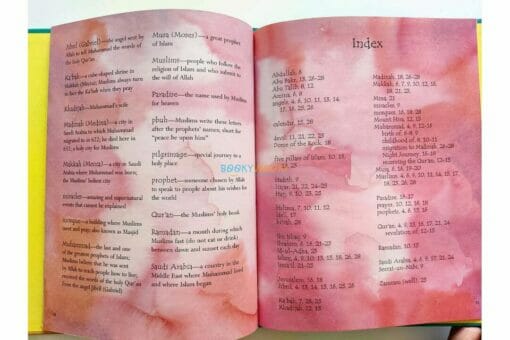 Jibril (Gabriel)—the angel sent by
Allah to tell Muhammad the words of
the holy Qur'an
Ka'bah—a cube-shaped shrine in
Makkah (Mecca); Muslims always turn
to face the Ka'bah when they pray
Khadijah—Muhammad's wife
Madinah (Medina)—a city in
Saudi Arabia to which Muhammad
migrated to in 622; he died here in
632, a holy city for Muslims
Makkah (Mecca)—a city in Saudi
Arabia where Muhammad was born;
the Muslims' holiest city
miracles—amazing and supernatural
events that cannot be explained
mosque—a building where Muslims
meet and pray; also known as Masjid
Muhammad—the last and one
of the greatest prophets of Islam;
Muslims believe that he was sent
by Allah to teach people how to live;
received the words of the holy Qur'an
from the angel Jibril (Gabriel)
Musa (Moses)—a great prophet
of Islam
Muslims—people who follow the
religion of Islam and who submit to
the will of Allah
Paradise—the name used by Muslims
for heaven
pbuh—Muslims write these letters
after the prophets' names; short for
"peace be upon him"
pilgrimage—special journey to a
holy place
prophet—someone chosen by Allah
to speak to people about his wishes for
the world
Qur'an—the Muslims' holy book
Ramadan—a month during which
Muslims fast (do not eat or drink)
between dawn and sunset each day
Saudi Arabia—a country in the
Middle East where Muhammad lived
and where Islam began
BOOKY
Index
Abdullah, 6
Abu Bakr, 15, 26-28
Abu Talib, 8, 12
Amina, 6, 8
angels, 4, 6, 10, 11, 13, 14,
17, 15, 16, 25, 26
calendar, 15, 28
devil, 11, 21, 22, 23
Dome of the Rock, 18
five pillars of Islam, 10, 18,
Hadith, 9
Hajar, 21, 22, 24-25
Hajj, 9, 10, 18, 25
Halima, 7, 10, 11, 12
Ibn Ishaq, 9
Ibrahim, 6, 16, 21-25
Islam, 4, 9, 10, 13, 15, 18, 26, 28
Jerusalem, 16, 18
Jibril, 4, 13, 14, 15, 16, 25, 26
Ka'bah, 7, 25
Khadijah, 12, 15
Madinah, 18, 26-28
Makkah, 6, 7, 9, 10, 12, 16,
18, 21, 25, 26, 28
Mina, 21
miracles, 9
mosques, 16, 18, 28
Mount Hira, 12, 15
Muhammad, 4, 9, 12, 15
birth of, 6-8
childhood of, 8, 10-11
migration to Madinah, 26-28
Night Journey, 16-18
receiving the Qur'an, 12-15
Musa, 6, 18, 19-20
Paradise, 16-17
prayers, 10, 12, 18, 18
prophets, 4, 6, 16
Qur'an, 4, 9, 13, 16, 17, 21, 24
revelation of, 12-15
Ramadan, 10, 15
Saudi Arabia, 4, 6, 9, 17, 21, 24
Seerat-un-Nabi, 9
Zamzam (well), 25